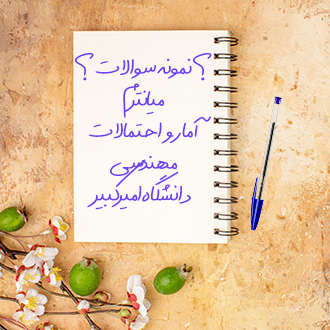 ؟ نمونه سوالات ؟
میانترم
آمار و احتمالات
مهندسی
دانشگاه امیرکبیر